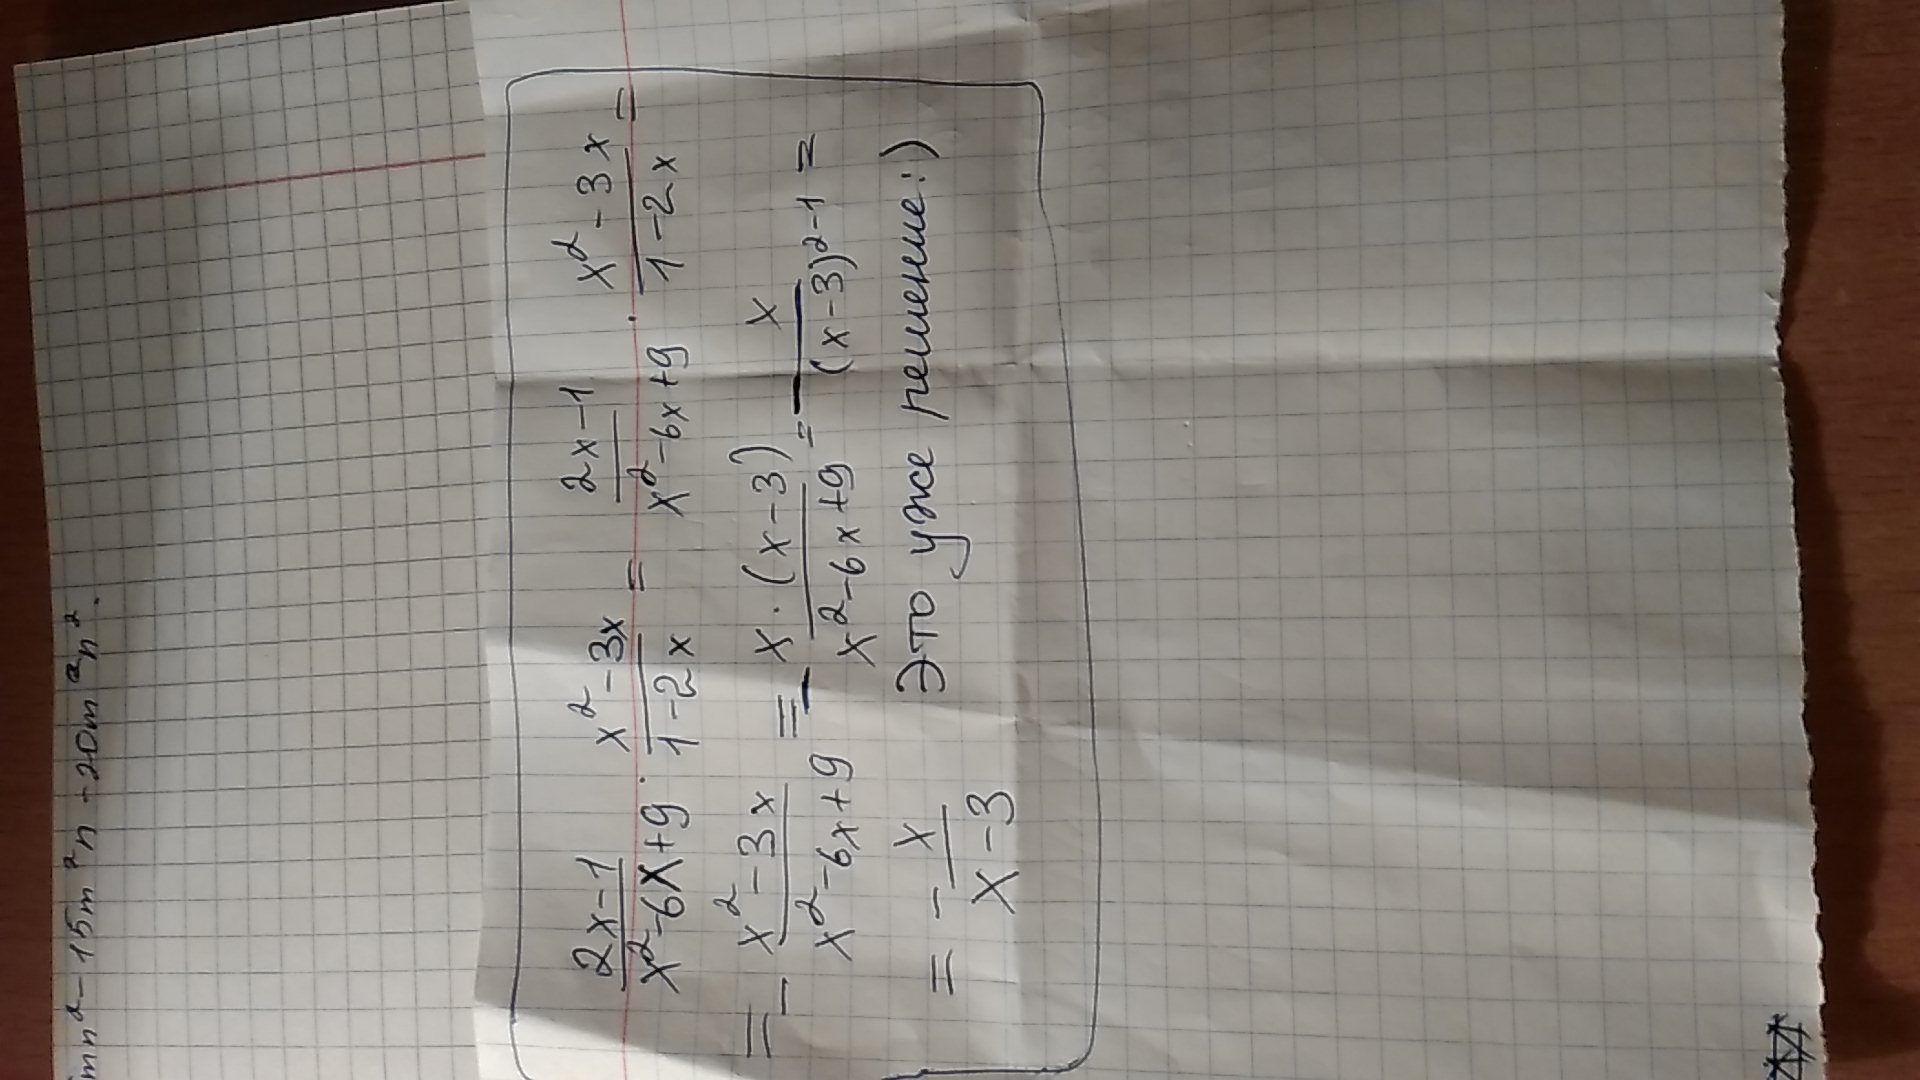 mn² - 15m²n - 20m²n².
(2x-1)/(x²-6x+9) · (x²-3x)/(1-2x) = (2x-1)/(x²-6x+9) · (x²-3x)/(1-2x) =
= - (x²-3x)/(x²-6x+9) = - (x·(x-3))/(x²-6x+9) = - x/(x-3)²⁻¹ =
= - x/(x-3) Это уже решение:)